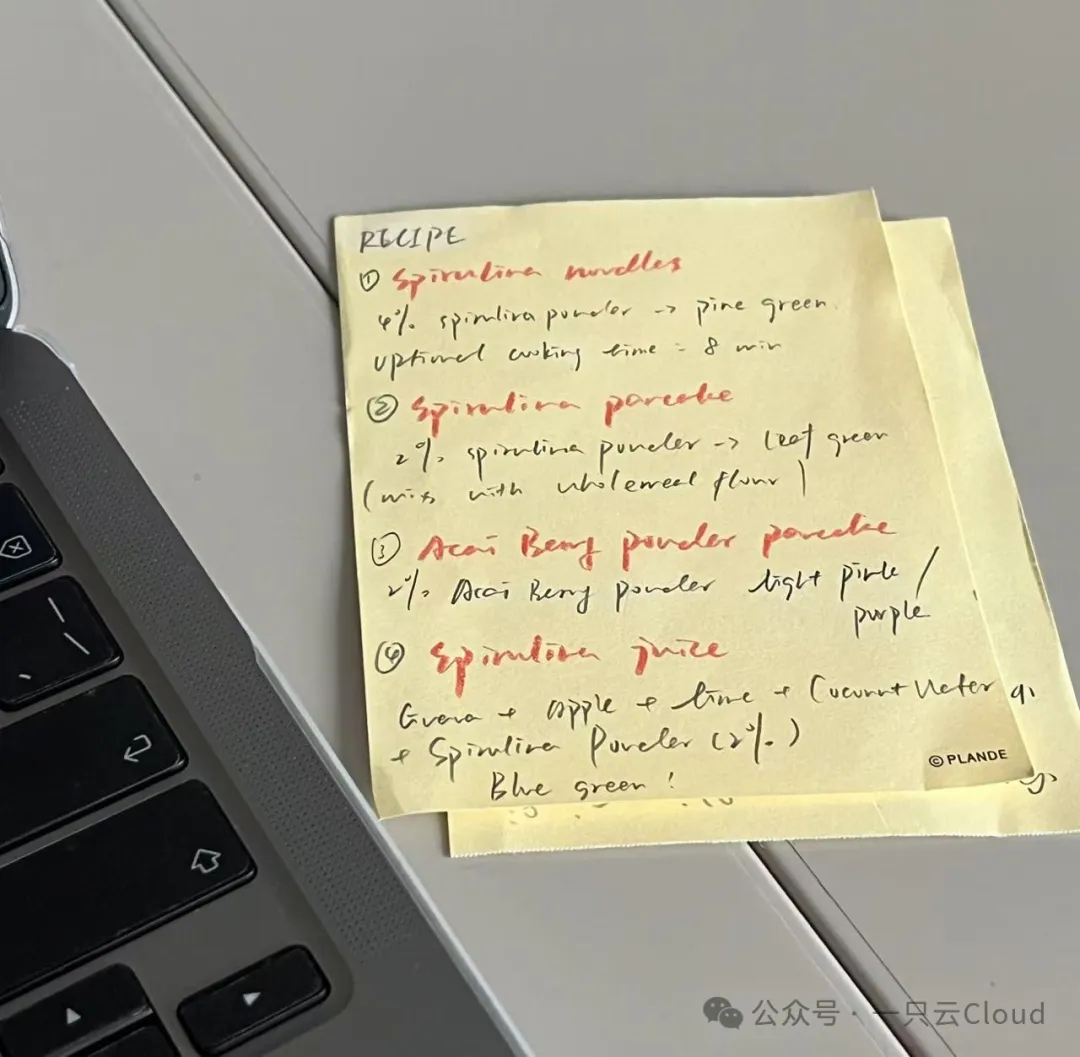 RECIPE
① Spirulina noodles
4% spirulina powder -> pine green
optimal cooking time = 8 min
② Spirulina pancake
2% spirulina powder -> leaf green
(mix with wholemeal flour)
③ Acai Berry powder pancake
2% Acai Berry powder light pink /
purple
④ Spirulina juice
Guava + apple + lime + Coconut Water
+ Spirulina Powder (2%)
Blue green!
© PLANDE
公众号 · 一只云Cloud